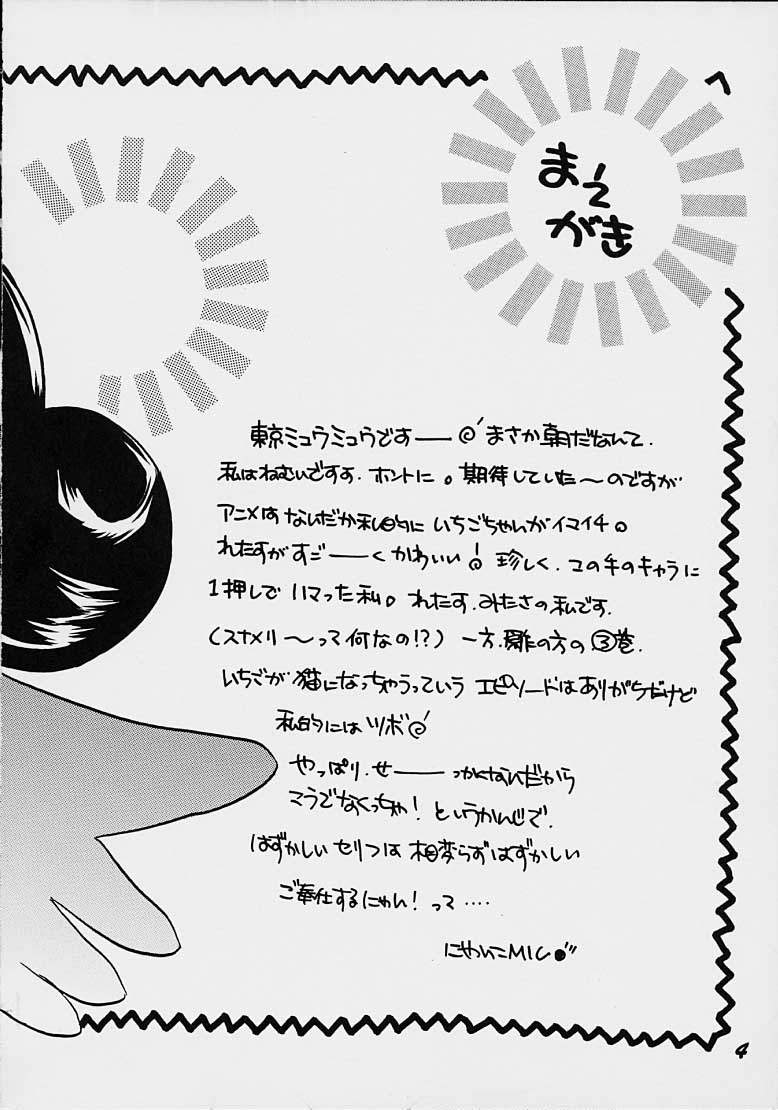 まえ
がき
東京ミュウミュウですーー まさか朝だなんて.
私はねむいですよ. ホントに。期待していた〜のですが
アニメはなんだか私的にいちごちゃんがイマイチ。
れたすがすごーーくかわいい! 珍しく.この手のキャラに
1押しでハマった私。れたす.みたさの私です.
(スナメリ〜って何なの!?) 一方.雑の方の③巻.
いちごが猫になっちゃうっていうエピソードはありがちだけど
私的にはツボ
やっぱり.せーーっかくなんだから
こうでなくっちゃ! というかんじで.
はずかしいセリフは相変らずはずかしい
ご奉仕するにゃん! って....
MIC
4